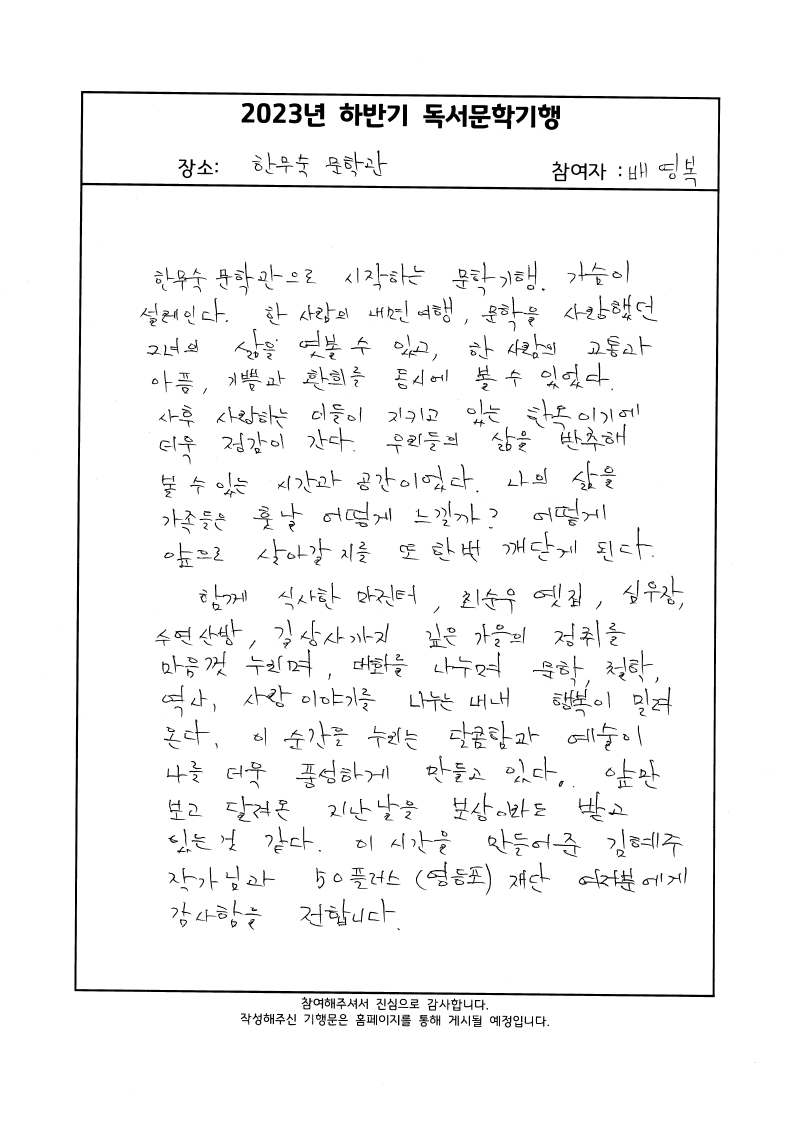 2023년 하반기 독서문학기행
장소: 한무숙 문학관 참여자 : 배영복
한무숙 문학관으로 시작하는 문학기행. 가슴이
설레인다. 한 사람의 내면여행, 문학을 사랑했던
그녀의 삶을 엿볼 수 있고, 한 사람의 고통과
아픔, 기쁨과 환희를 동시에 볼 수 있었다.
사후 사랑하는 이들이 지키고 있는 한옥이기에
더욱 정감이 간다. 우리들의 삶을 반추해
볼 수 있는 시간과 공간이었다. 나의 삶을
가족들은 훗날 어떻게 느낄까? 어떻게
앞으로 살아갈지를 또 한번 깨단게 된다.
함께 식사한 마전터, 최순우 옛집, 심우장,
수연산방, 길상사까지 깊은 가을의 정취를
마음껏 누리며, 대화를 나누며 문학, 철학,
역사, 사랑 이야기를 나누는 내내 행복이 밀려
온다. 이 순간을 누리는 달콤함과 예술이
나를 더욱 풍성하게 만들고 있다. 앞만
보고 달려온 지난날을 보상이라도 받고
있는 것 같다. 이 시간을 만들어준 김혜주
작가님과 50플러스 (영등포) 재단 여러분에게
감사함을 전합니다.
참여해주셔서 진심으로 감사합니다.
작성해주신 기행문은 홈페이지를 통해 게시될 예정입니다.